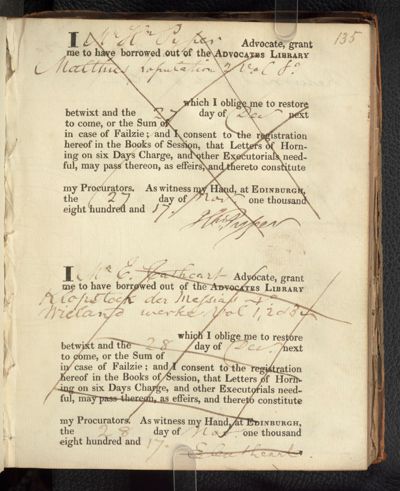 135
I Mr Advocate, grant
me to have borrowed out of the ADVOCATES LIBRARY
Malthus 2 Vol 8o
which I oblige me to restore
betwixt and the 27 day of Dec next
to come, or the Sum of
in case of Failzie; and I consent to the registration
hereof in the Books of Session, that Letters of Horn-
ing on six Days Charge, and other Executorials need-
ful, may pass thereon, as effeirs, and thereto constitute
my Procurators. As witness my Hand, at EDINBURGH,
the 27 day of Nov one thousand
eight hundred and 17.
I Mr E. Cathcart Advocate, grant
me to have borrowed out of the ADVOCATES LIBRARY
Klopstock der Messias
Wielands werke Vol 1, 2 & 3
which I oblige me to restore
betwixt and the 28 day of Dec. next
to come, or the Sum of
in case of Failzie; and I consent to the registration
hereof in the Books of Session, that Letters of Horn-
ing on six Days Charge, and other Executorials need-
ful, may pass thereon, as effeirs, and thereto constitute
my Procurators. As witness my Hand, at EDINBURGH,
the 28 day of Nov. one thousand
eight hundred and 17.
E Cathcart.